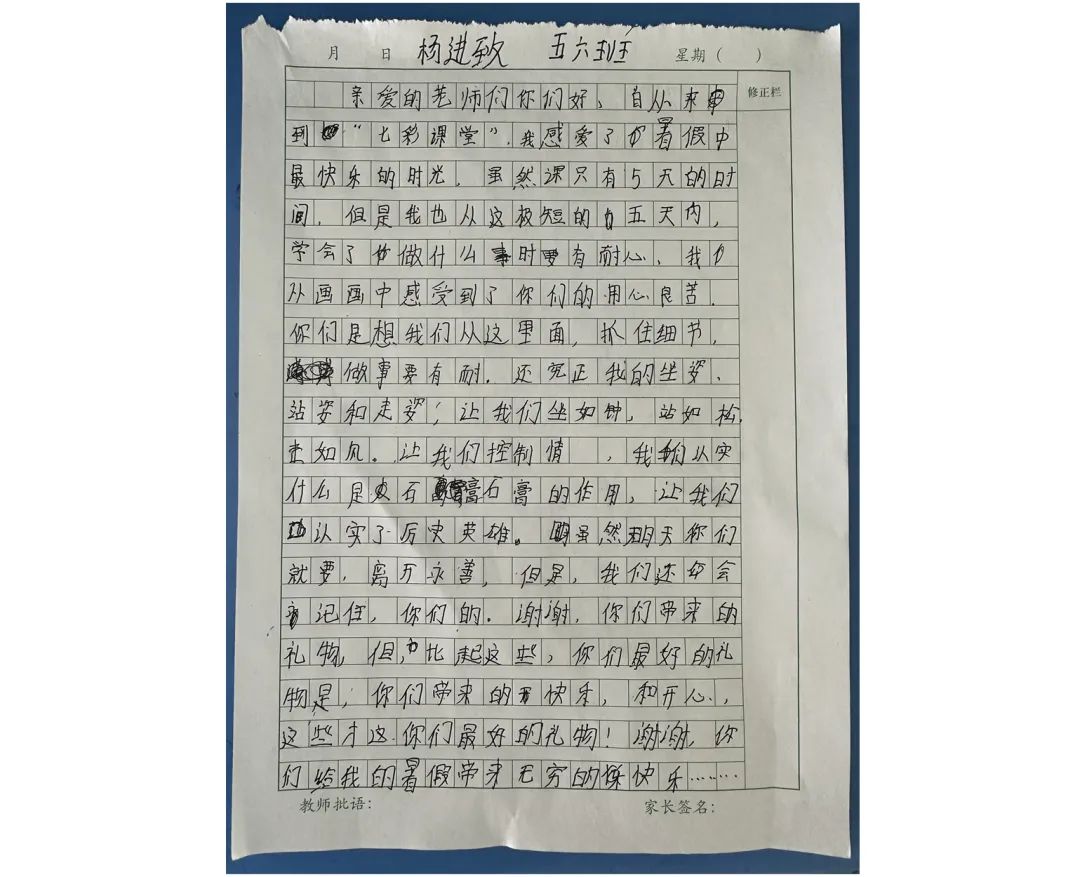 月 日 杨进致 五六班 星期( )
亲爱的老师们你们好、自从来 修正栏
到“七彩课堂”.我感爱了暑假中
最快乐的时光.虽然课只有5天的时
间.但是我也从这极短的五天内,
学会了做什么事时要有耐心、我
从画画中感受到了你们的用心良苦.
你们是想我们从这里面,抓住细节,
做事要有耐.还完正我的坐姿、
站姿和走姿!让我们坐如钟,站如松.
走如风。让我们控制情 ,我们认实
什么是石膏石膏的作用,让我们
认实了历史英雄。虽然明天你们
就要,离开永善,但是,我们还会
记住,你们的.谢谢,你们带来的
礼物,但,比起这些,你们最好的礼
物是,你们带来的快乐,和开心.,
这些才这你们最好的礼物!谢谢,你
们给我的暑假带来无穷的快乐……
教师批语: 家长签名: